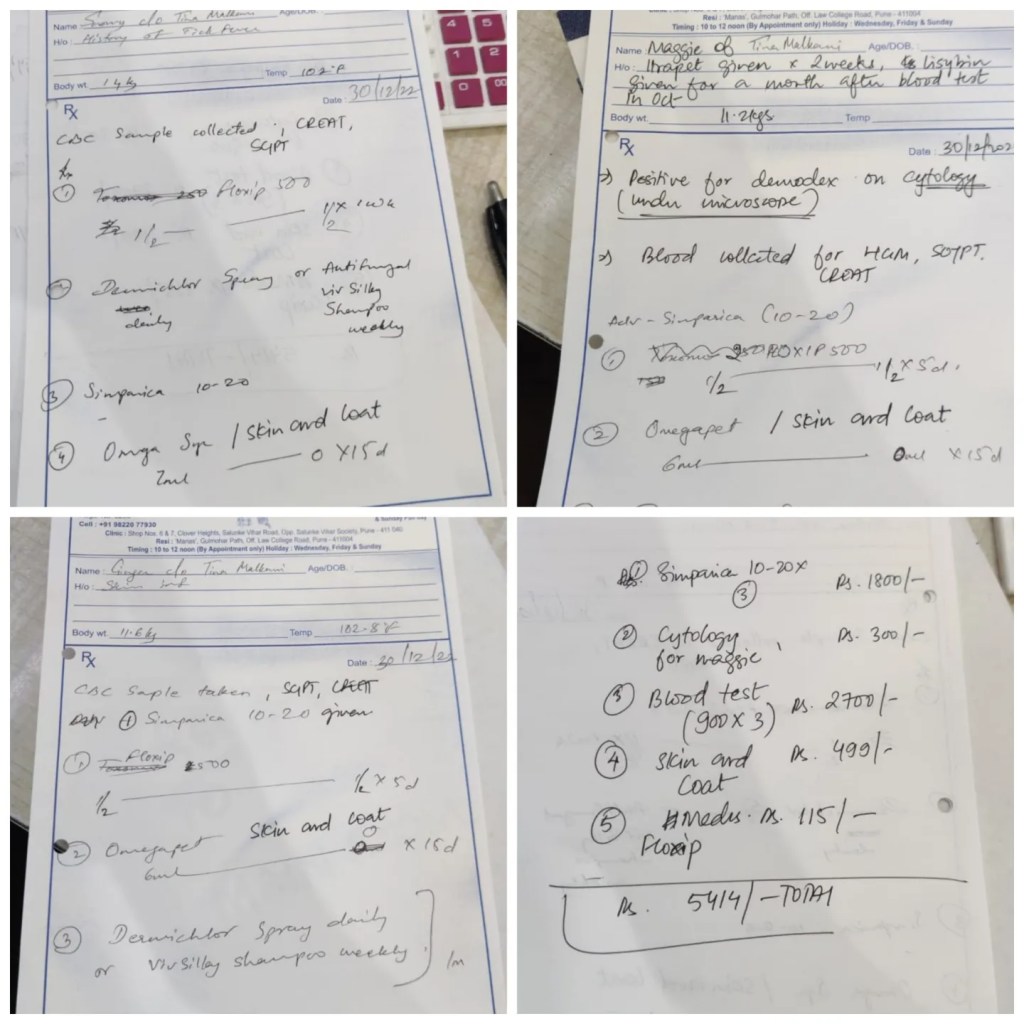 Name c/o Tina Malkani Age/DOB.
H/o: History of Tick Fever
Body wt. 14 kg Temp 102°F
Date: 30/12/22
Rx
CBC Sample collected, CREAT,
SGPT
① Floxip 500
1/2 — 1/2 x 1 wk
② Dermichlor Spray or Antifungal
daily Viv Silky
Shampoo
weekly
③ Simparica 10-20
④ Omega Syr / Skin and Coat
7ml — 0 x 15d
4 5
1 2
0 00
Resi : 'Manas', Gulmohar Path, Off. Law College Road, Pune - 411004
Timing : 10 to 12 noon (By Appointment only) Holiday : Wednesday, Friday & Sunday
Name Maggie of Tina Malkani Age/DOB.
H/o: given x 2 weeks, lisybin
given for a month after blood test
in Oct
Body wt. 11.2kgs Temp
Rx
Date: 30/12/202
Positive for demodex on cytology
(under microscope)
Blood collected for HGM, SGPT.
CREAT
Adv - Simparica (10-20)
① FLOXIP 500
1/2 — 1/2 x 5d.
② Omegapet / Skin and Coat
6ml — 0ml x 15d
Cell : +91 98220 77930
Clinic : Shop Nos. 6 & 7, Clover Heights, Salunke Vihar Road, Opp. Salunke Vihar Society, Pune - 411 040
Resi : 'Manas', Gulmohar Path, Off. Law College Road, Pune - 411004
Timing : 10 to 12 noon (By Appointment only) Holiday : Wednesday, Friday & Sunday
Name: Ginger c/o Tina Malkani Age/DOB.
H/o: Skin inf
Body wt. 11.6 kg Temp 102.8°F
Rx
Date: 30/12/22
CBC Saple taken, SGPT, CREAT
① Simparica 10-20 given
① Floxip 500
1/2 — 1/2 x 5d
Skin and coat
② Omegapet 0 x 15d
6ml —
③ Dermichlor Spray daily
or VivSilky shampoo weekly. 1m
① Simparica 10-20x Rs. 1800/-
③
② Cytology Rs. 300/-
for maggie
③ Blood test Rs. 2700/-
(900 x 3)
④ Skin and Rs. 499/-
Coat
⑤ Meds. Rs. 115/-
Floxip
Rs. 5414/- TOTAL